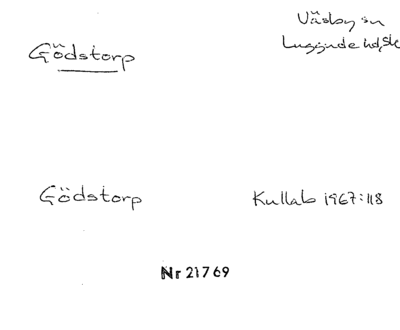 Väsby sn
Gödstorp
Luggude hd, Sk
Gödstorp
Kullab 1967:118
Nr 21769